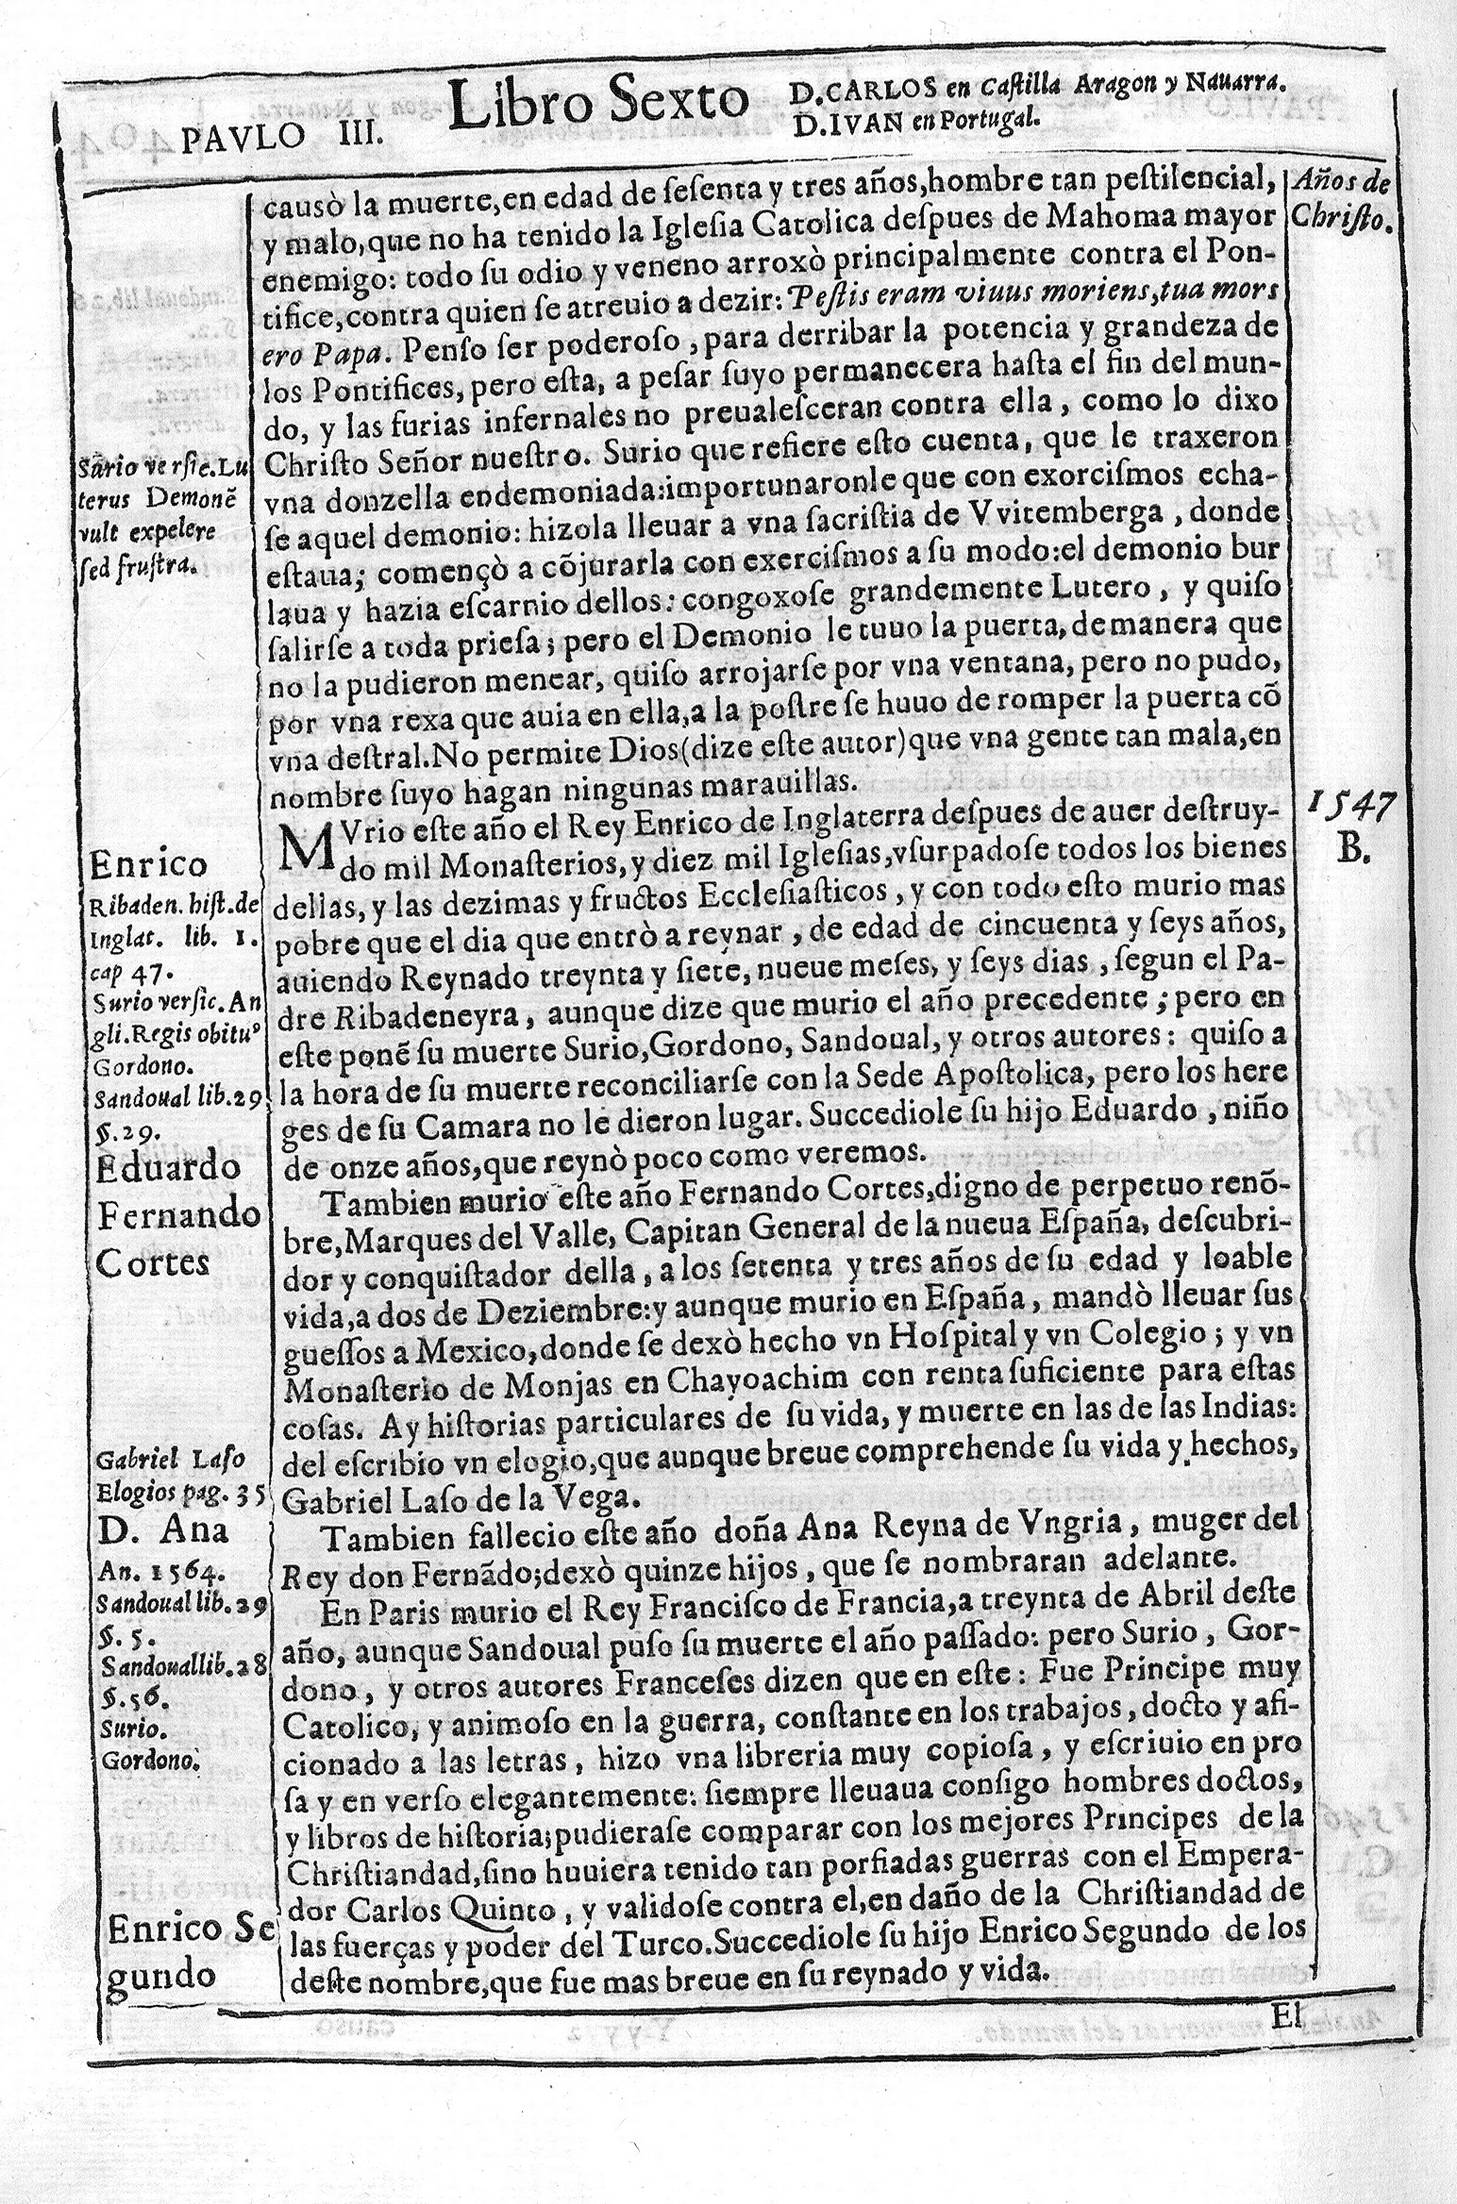 PAVLO III.
Libro Sexto
D. CARLOS en Castilla Aragon y Nauarra.
D. IVAN en Portugal.
Años de
Christo.
causò la muerte, en edad de sesenta y tres años, hombre tan pestilencial,
y malo, que no ha tenido la Iglesia Catolica despues de Mahoma mayor
enemigo: todo su odio y veneno arroxò principalmente contra el Pon-
tifice, contra quien se atreuio a dezir: Pestis eram viuus moriens, tua mors
ero Papa. Penso ser poderoso, para derribar la potencia y grandeza de
los Pontifices, pero esta, a pesar suyo permanecera hasta el fin del mun-
do, y las furias infernales no preualesceran contra ella, como lo dixo
Christo Señor nuestro. Surio que refiere esto cuenta, que le traxeron
vna donzella endemoniada: importunaronle que con exorcismos echa-
se aquel demonio: hizola lleuar a vna sacristia de Vvitemberga, donde
estaua; començò a cõjurarla con exercismos a su modo: el demonio bur
laua y hazia escarnio dellos: congoxose grandemente Lutero, y quiso
salirse a toda priesa; pero el Demonio le tuuo la puerta, de manera que
no la pudieron menear, quiso arrojarse por vna ventana, pero no pudo,
por vna rexa que auia en ella, a la postre se huuo de romper la puerta cõ
vna destral. No permite Dios (dize este autor) que vna gente tan mala, en
nombre suyo hagan ningunas marauillas.
Surio versic. Lu
terus Demonẽ
vult expelere
sed frustra.
1547
B.
MVrio este año el Rey Enrico de Inglaterra despues de auer destruy-
do mil Monasterios, y diez mil Iglesias, vsurpadose todos los bienes
dellas, y las dezimas y fructos Ecclesiasticos, y con todo esto murio mas
pobre que el dia que entrò a reynar, de edad de cincuenta y seys años,
auiendo Reynado treynta y siete, nueue meses, y seys dias, segun el Pa-
dre Ribadeneyra, aunque dize que murio el año precedente; pero en
este ponẽ su muerte Surio, Gordono, Sandoual, y otros autores: quiso a
la hora de su muerte reconciliarse con la Sede Apostolica, pero los here
ges de su Camara no le dieron lugar. Succediole su hijo Eduardo, niño
de onze años, que reynò poco como veremos.
Enrico
Ribaden. hist. de
Inglat. lib. 1.
cap 47.
Surio versic. An
gli. Regis obituꝰ
Gordono.
Sandoual lib. 29
§. 29.
Eduardo
Fernando
Cortes
Tambien murio este año Fernando Cortes, digno de perpetuo renõ-
bre, Marques del Valle, Capitan General de la nueua España, descubri-
dor y conquistador della, a los setenta y tres años de su edad y loable
vida, a dos de Deziembre: y aunque murio en España, mandò lleuar sus
guessos a Mexico, donde se dexò hecho vn Hospital y vn Colegio; y vn
Monasterio de Monjas en Chayoachim con renta suficiente para estas
cosas. Ay historias particulares de su vida, y muerte en las de las Indias:
del escribio vn elogio, que aunque breue comprehende su vida y hechos,
Gabriel Laso de la Vega.
Gabriel Laso
Elogios pag. 35
D. Ana
An. 1564.
Sandoual lib. 29
§. 5.
Sandoual lib. 28
§. 56.
Surio.
Gordono.
Tambien fallecio este año doña Ana Reyna de Vngria, muger del
Rey don Fernãdo; dexò quinze hijos, que se nombraran adelante.
En Paris murio el Rey Francisco de Francia, a treynta de Abril deste
año, aunque Sandoual puso su muerte el año passado: pero Surio, Gor-
dono, y otros autores Franceses dizen que en este: Fue Principe muy
Catolico, y animoso en la guerra, constante en los trabajos, docto y afi-
cionado a las letras, hizo vna libreria muy copiosa, y escriuio en pro
sa y en verso elegantemente: siempre lleuaua consigo hombres doctos,
y libros de historia; pudierase comparar con los mejores Principes de la
Christiandad, sino huuiera tenido tan porfiadas guerras con el Empera-
dor Carlos Quinto, y validose contra el, en daño de la Christiandad de
las fuerças y poder del Turco. Succediole su hijo Enrico Segundo de los
deste nombre, que fue mas breue en su reynado y vida.
Enrico Se
gundo
El